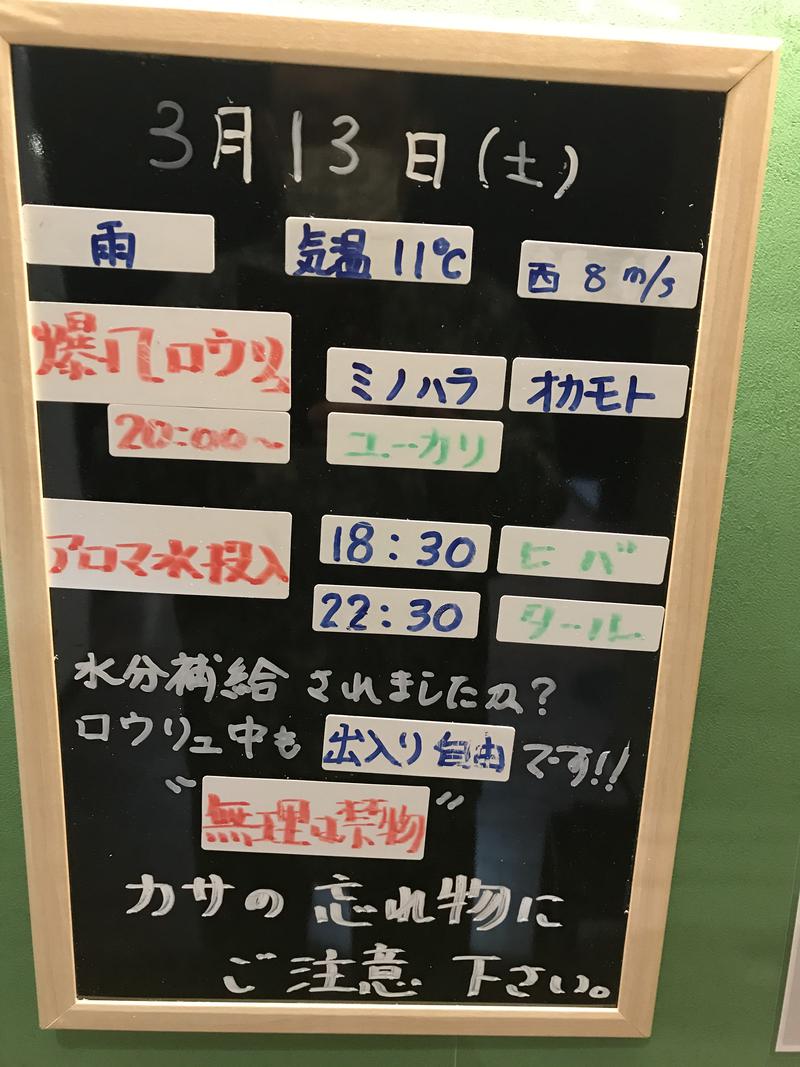 3月13日(土)
雨 気温 11℃ 西 8 m/s
爆風ロウリュ ミノハラ オカモト
20:00〜 ユーカリ
アロマ水投入 18:30 ヒバ
22:30 タール
水分補給 されましたか?
ロウリュ中も 出入り自由 です!!
"無理は禁物"
カサの 忘れ物に
ご注意 下さい。